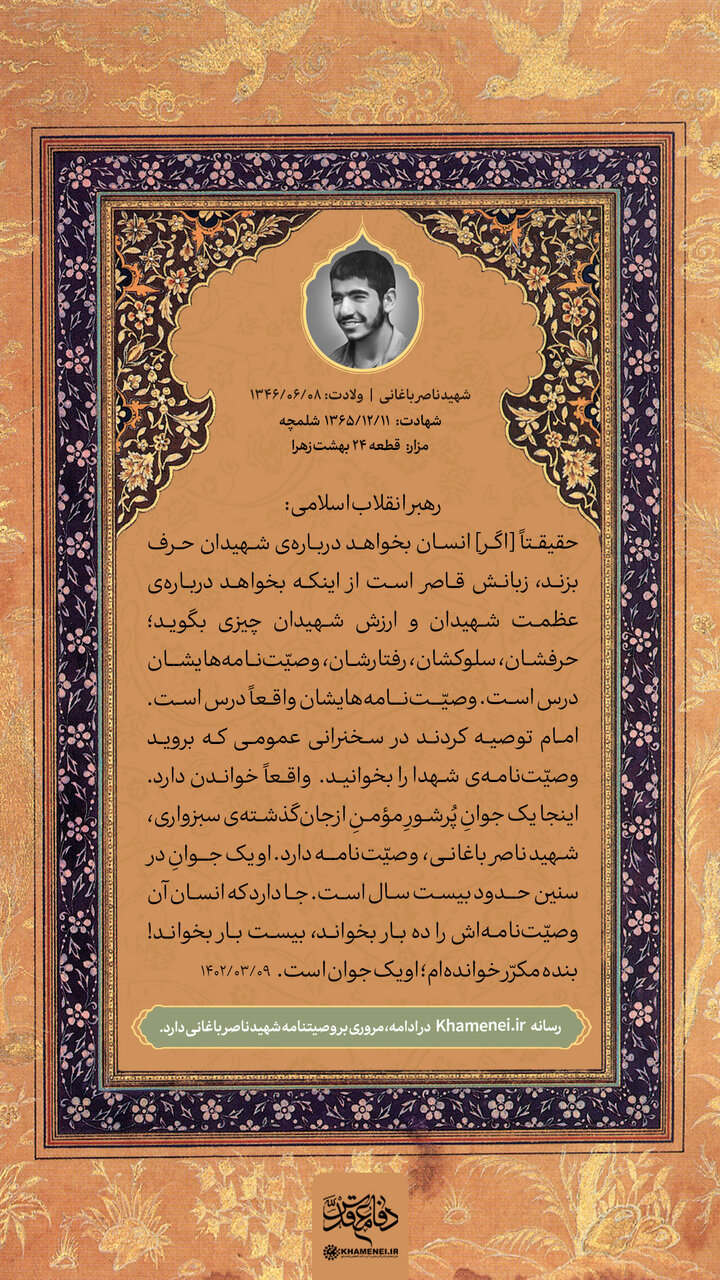 شهید ناصر باغانی | ولادت: ۱۳۴۶/۰۶/۰۸
شهادت: ۱۳۶۵/۱۲/۱۱ شلمچه
مزار: قطعه ۲۴ بهشت زهرا
رهبر انقلاب اسلامی:
حقیقتاً [اگر] انسان بخواهد درباره‌ی شهیدان حرف
بزند، زبانش قاصر است از اینکه بخواهد درباره‌ی
عظمت شهیدان و ارزش شهیدان چیزی بگوید؛
حرفشان، سلوکشان، رفتارشان، وصیّت‌نامه‌هایشان
درس است. وصیّت‌نامه‌هایشان واقعاً درس است.
امام توصیه کردند در سخنرانی عمومی که بروید
وصیّت‌نامه‌ی شهدا را بخوانید. واقعاً خواندن دارد.
اینجا یک جوانِ پُرشورِ مؤمنِ ازجان‌گذشته‌ی سبزواری،
شهید ناصر باغانی، وصیّت‌نامه دارد. او یک جوانِ در
سنین حدود بیست سال است. جا دارد که انسان آن
وصیّت‌نامه‌اش را ده بار بخواند، بیست بار بخواند!
بنده مکرّر خوانده‌ام؛ او یک جوان است. ۱۴۰۲/۰۳/۰۹
رسانه Khamenei.ir در ادامه، مروری بر وصیتنامه شهید ناصر باغانی دارد.
دفاع مقدس
KHAMENEI.IR